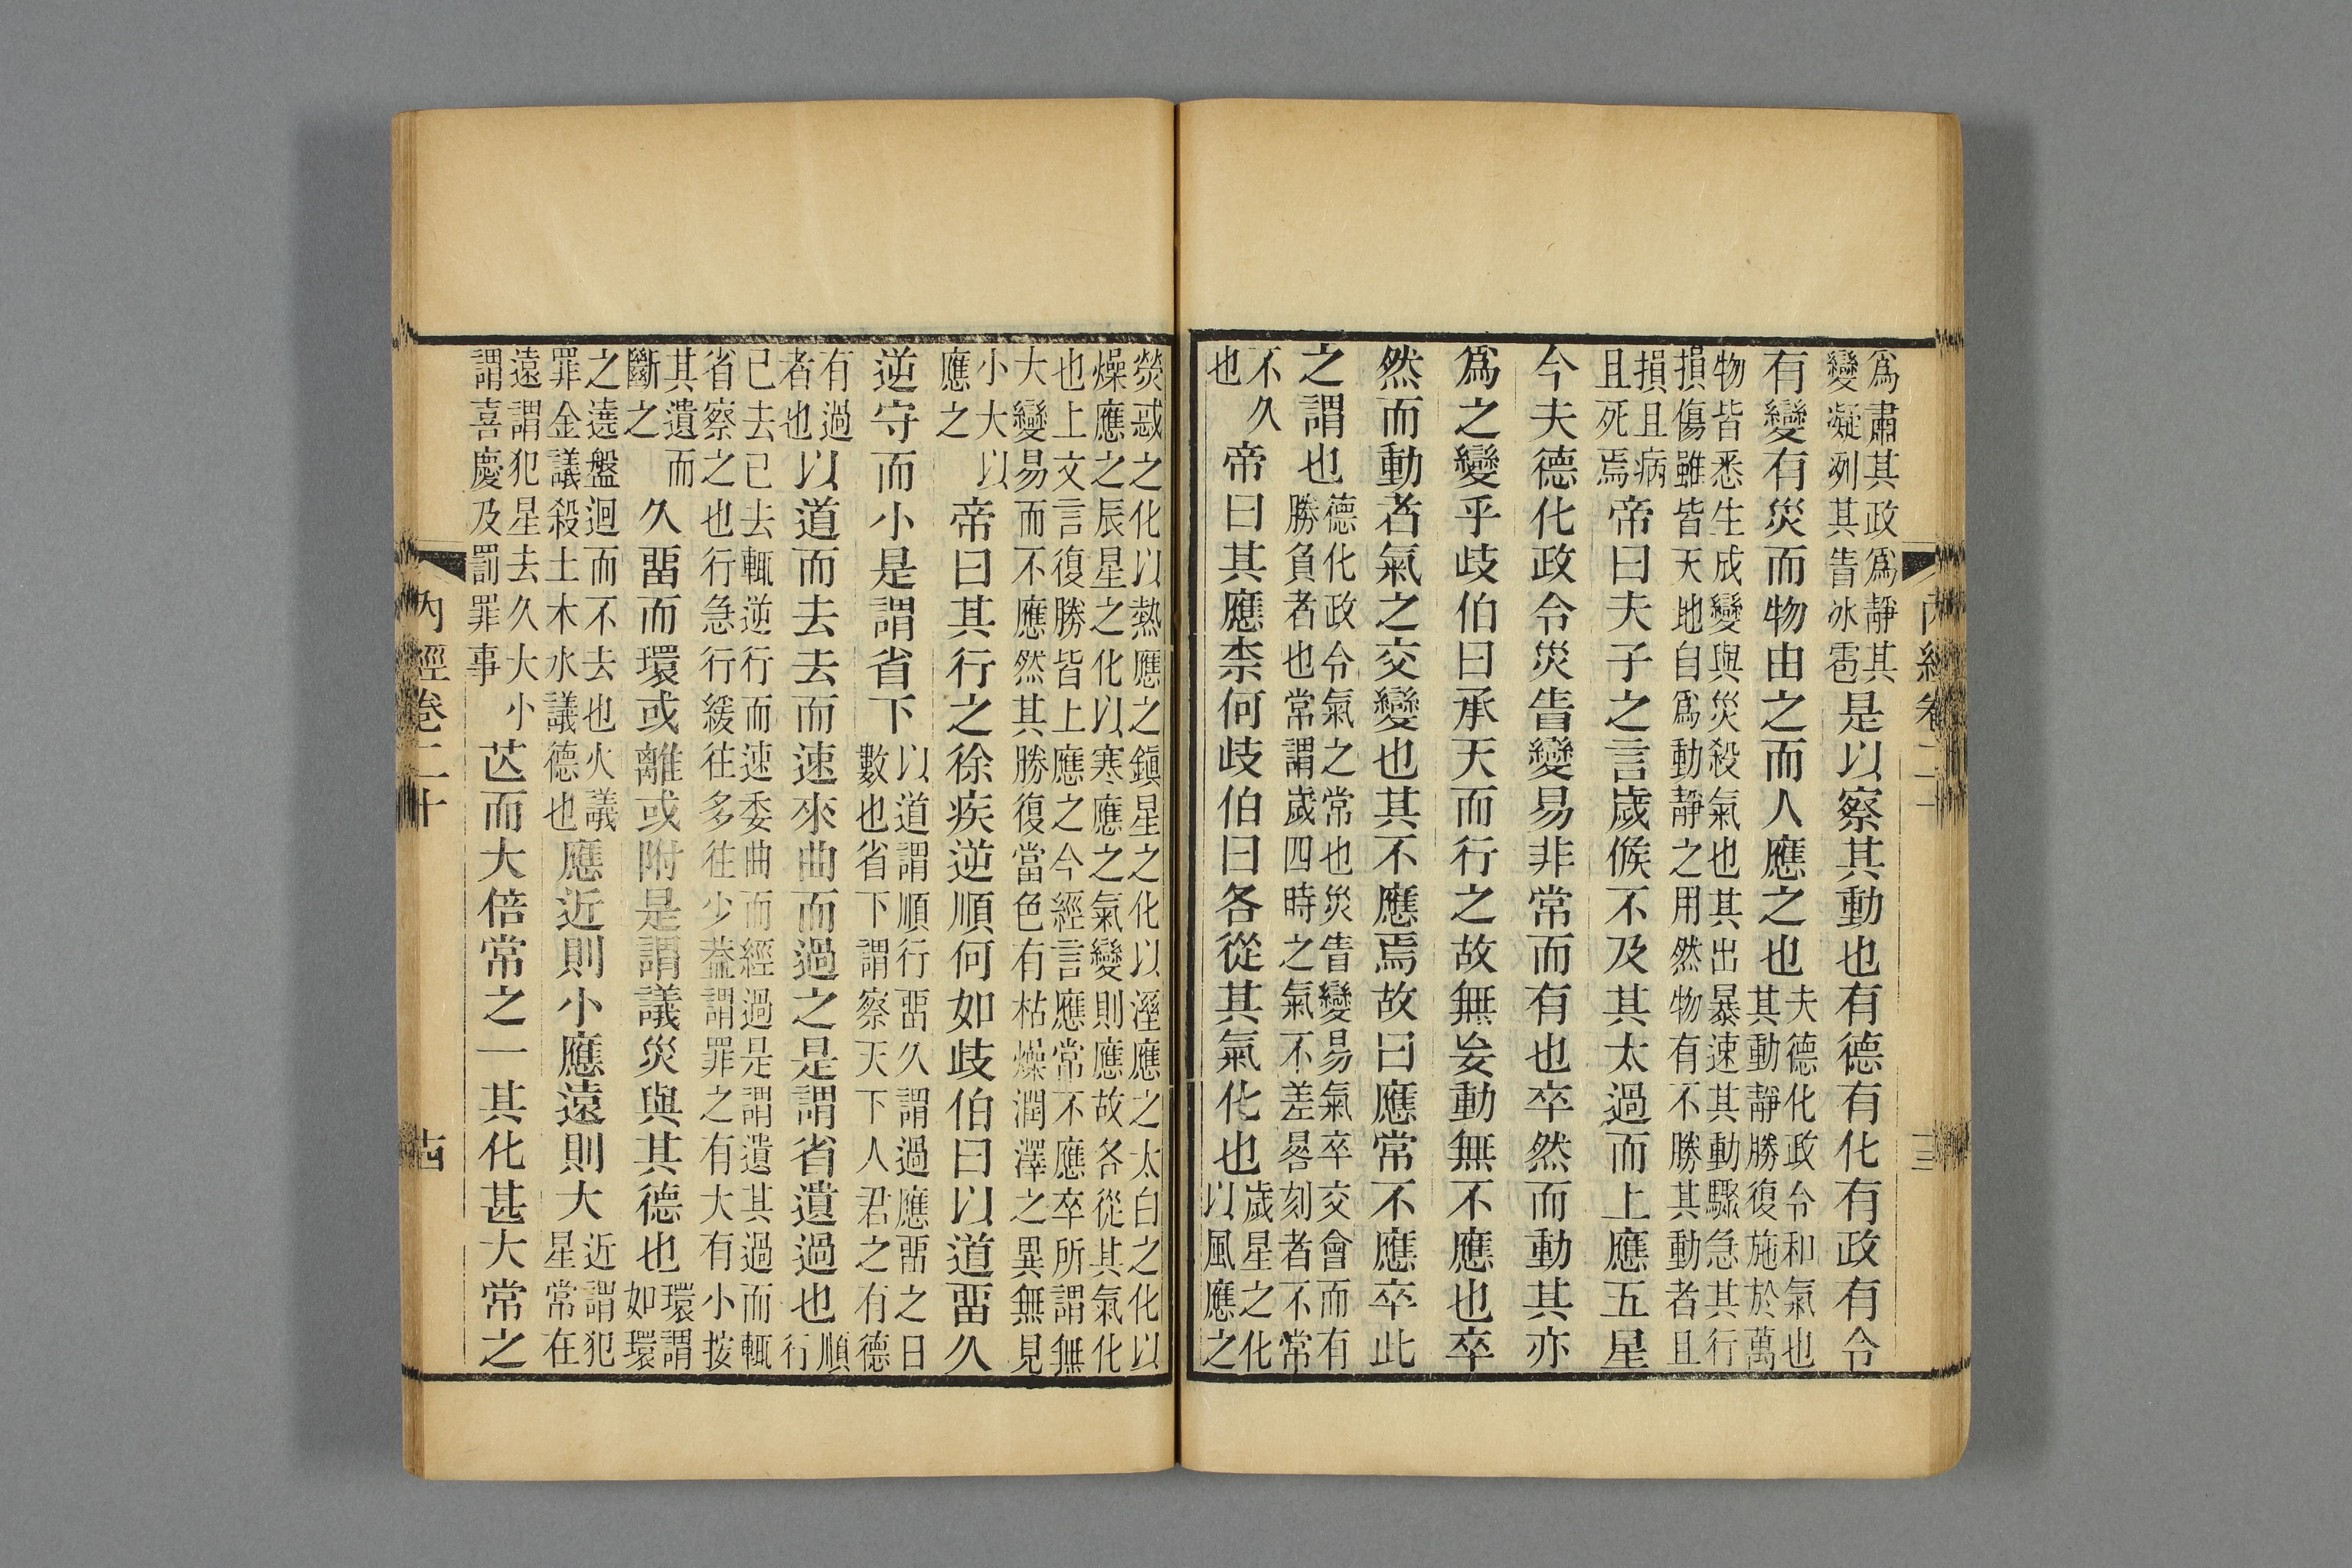 爲肅其政爲靜其變凝冽其眚冰雹是以察其動也有德有化有政有令
有變有災而物由之而人應之也夫德化政令和氣也其動靜勝復施於萬
物皆悉生成變與災殺氣也其出暴速其動驟急其行損傷雖皆天地自爲動靜之用然物有不勝其動者且
損且病且死焉帝曰夫子之言歲候不及其太過而上應五星
今夫德化政令災眚變易非常而有也卒然而動其亦
爲之變乎歧伯曰承天而行之故無妄動無不應也卒
然而動者氣之交變也其不應焉故曰應常不應卒此
之謂也德化政令氣之常也災眚變易氣卒交會而有勝負者也常謂歲四時之氣不差晷刻者不常
不久也帝曰其應柰何歧伯曰各從其氣化也歲星之化以風應之
熒惑之化以熱應之鎭星之化以溼應之太白之化以燥應之辰星之化以寒應之氣變則應故各從其氣化
也上文言復勝皆上應之今經言應常不應卒所謂無大變易而不應然其勝復當色有枯燥潤澤之異無見
小大以應之帝曰其行之徐疾逆順何如歧伯曰以道畱久
逆守而小是謂省下以道謂順行畱久謂過應畱之日數也省下謂察天下人君之有德
有過者也以道而去去而速來曲而過之是謂省遺過也順行
已去已去輒逆行而速委曲而經過是謂遺其過而輒省察之也行急行緩往多往少蓋謂罪之有大有小按
其遺而斷之久畱而環或離或附是謂議災與其德也環謂如環
之遶盤迴而不去也火議罪金議殺土木水議德也應近則小應遠則大近謂犯星常在
遠謂犯星去久大小謂喜慶及罰罪事芒而大倍常之一其化甚大常之
內經卷二十